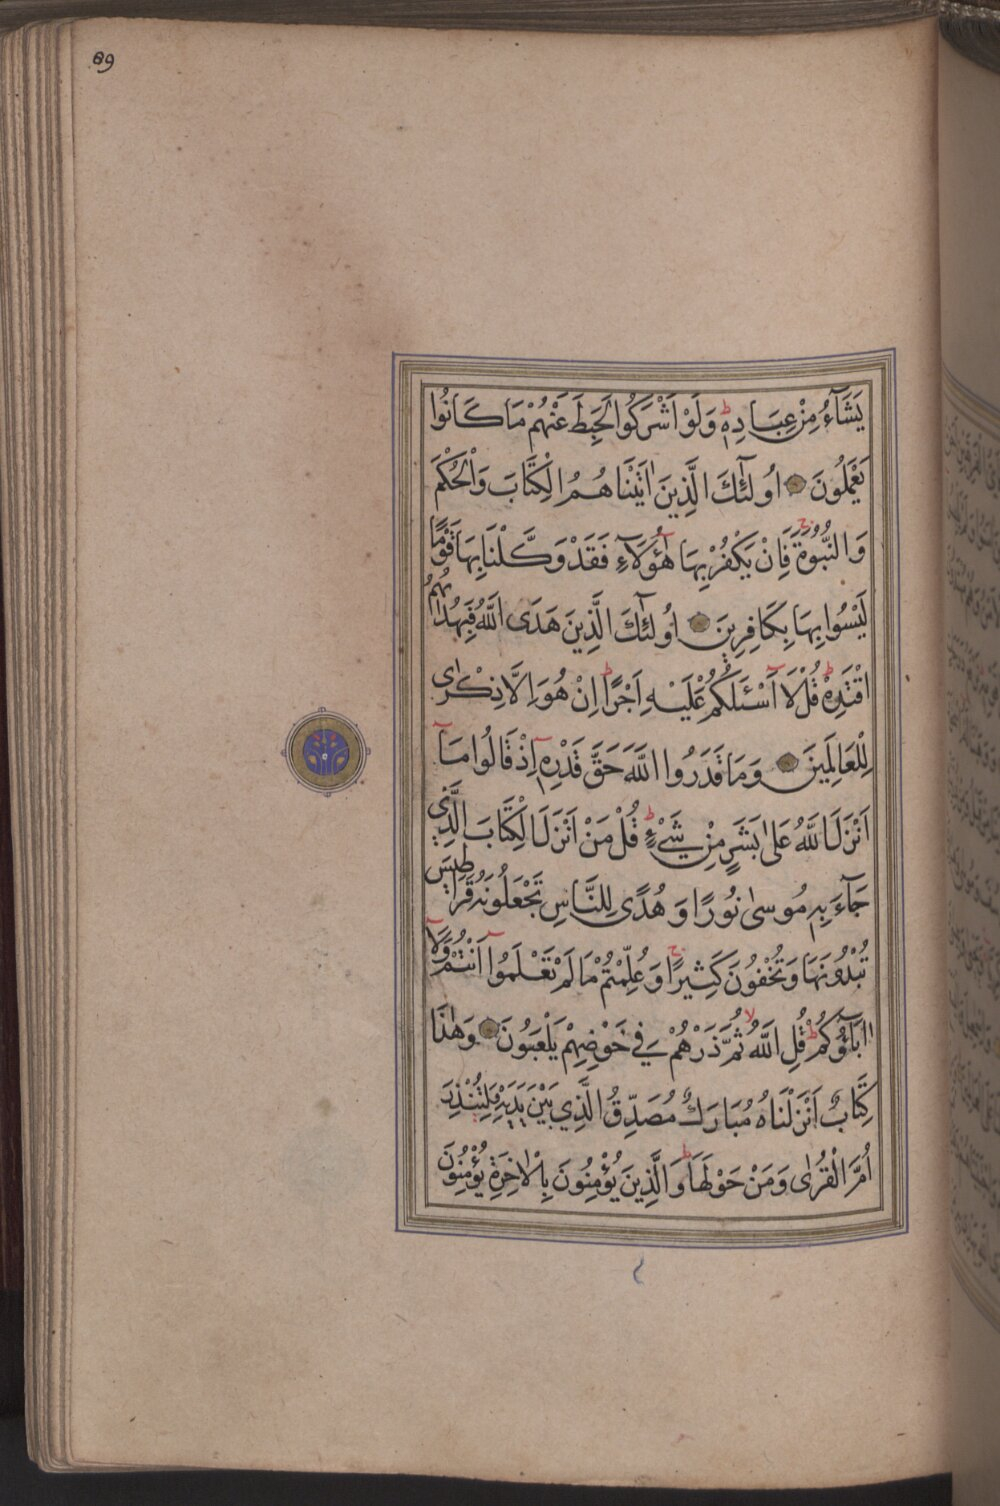 89
يَشَآءُ مِنْ عِبَادِهٖ ط وَلَوْ اَشْرَكُوا لَحَبِطَ عَنْهُمْ مَا كَانُوا
يَعْمَلُونَ اُولٰٓئِكَ الَّذِينَ اٰتَيْنَاهُمُ الْكِتَابَ وَالْحُكْمَ
وَالنُّبُوَّةَ ج فَاِنْ يَكْفُرْ بِهَا هٰٓؤُلَآءِ فَقَدْ وَكَّلْنَا بِهَا قَوْمًا
لَيْسُوا بِهَا بِكَافِرِينَ اُولٰٓئِكَ الَّذِينَ هَدَى اللّٰهُ فَبِهُدٰيهُمُ
اقْتَدِهْ ط قُلْ لَآ اَسْئَلُكُمْ عَلَيْهِ اَجْرًا ط اِنْ هُوَ اِلَّا ذِكْرٰى
لِلْعَالَمِينَ وَمَا قَدَرُوا اللّٰهَ حَقَّ قَدْرِهٖٓ اِذْ قَالُوا مَآ
اَنْزَلَ اللّٰهُ عَلٰى بَشَرٍ مِنْ شَيْءٍ ط قُلْ مَنْ اَنْزَلَ الْكِتَابَ الَّذِي
جَآءَ بِهٖ مُوسٰى نُورًا وَهُدًى لِلنَّاسِ تَجْعَلُونَهُ قَرَاطِيسَ
تُبْدُونَهَا وَتُخْفُونَ كَثِيرًا ج وَعُلِّمْتُمْ مَا لَمْ تَعْلَمُوٓا اَنْتُمْ وَلَآ
اٰبَآؤُكُمْ ط قُلِ اللّٰهُ لا ثُمَّ ذَرْهُمْ فِي خَوْضِهِمْ يَلْعَبُونَ وَهٰذَا
كِتَابٌ اَنْزَلْنَاهُ مُبَارَكٌ مُصَدِّقُ الَّذِي بَيْنَ يَدَيْهِ وَلِتُنْذِرَ
اُمَّ الْقُرٰى وَمَنْ حَوْلَهَا ط وَالَّذِينَ يُؤْمِنُونَ بِالْاٰخِرَةِ يُؤْمِنُونَ